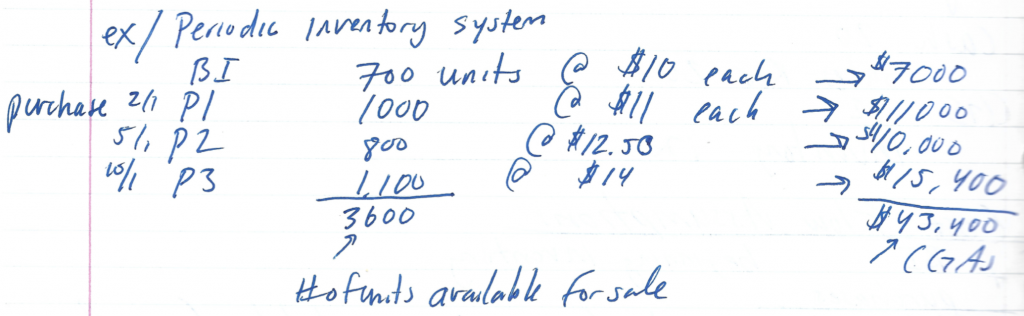 ex/ Periodic Inventory system
BI 700 units @ $10 each → $7000
purchase 2/1 P1 1000 @ $11 each → $11000
5/1 P2 800 @ $12.50 → $10,000
10/1 P3 1,100 @ $14 → $15,400
3600 $43,400
↑ ↑ CGAS
# of units available for sale